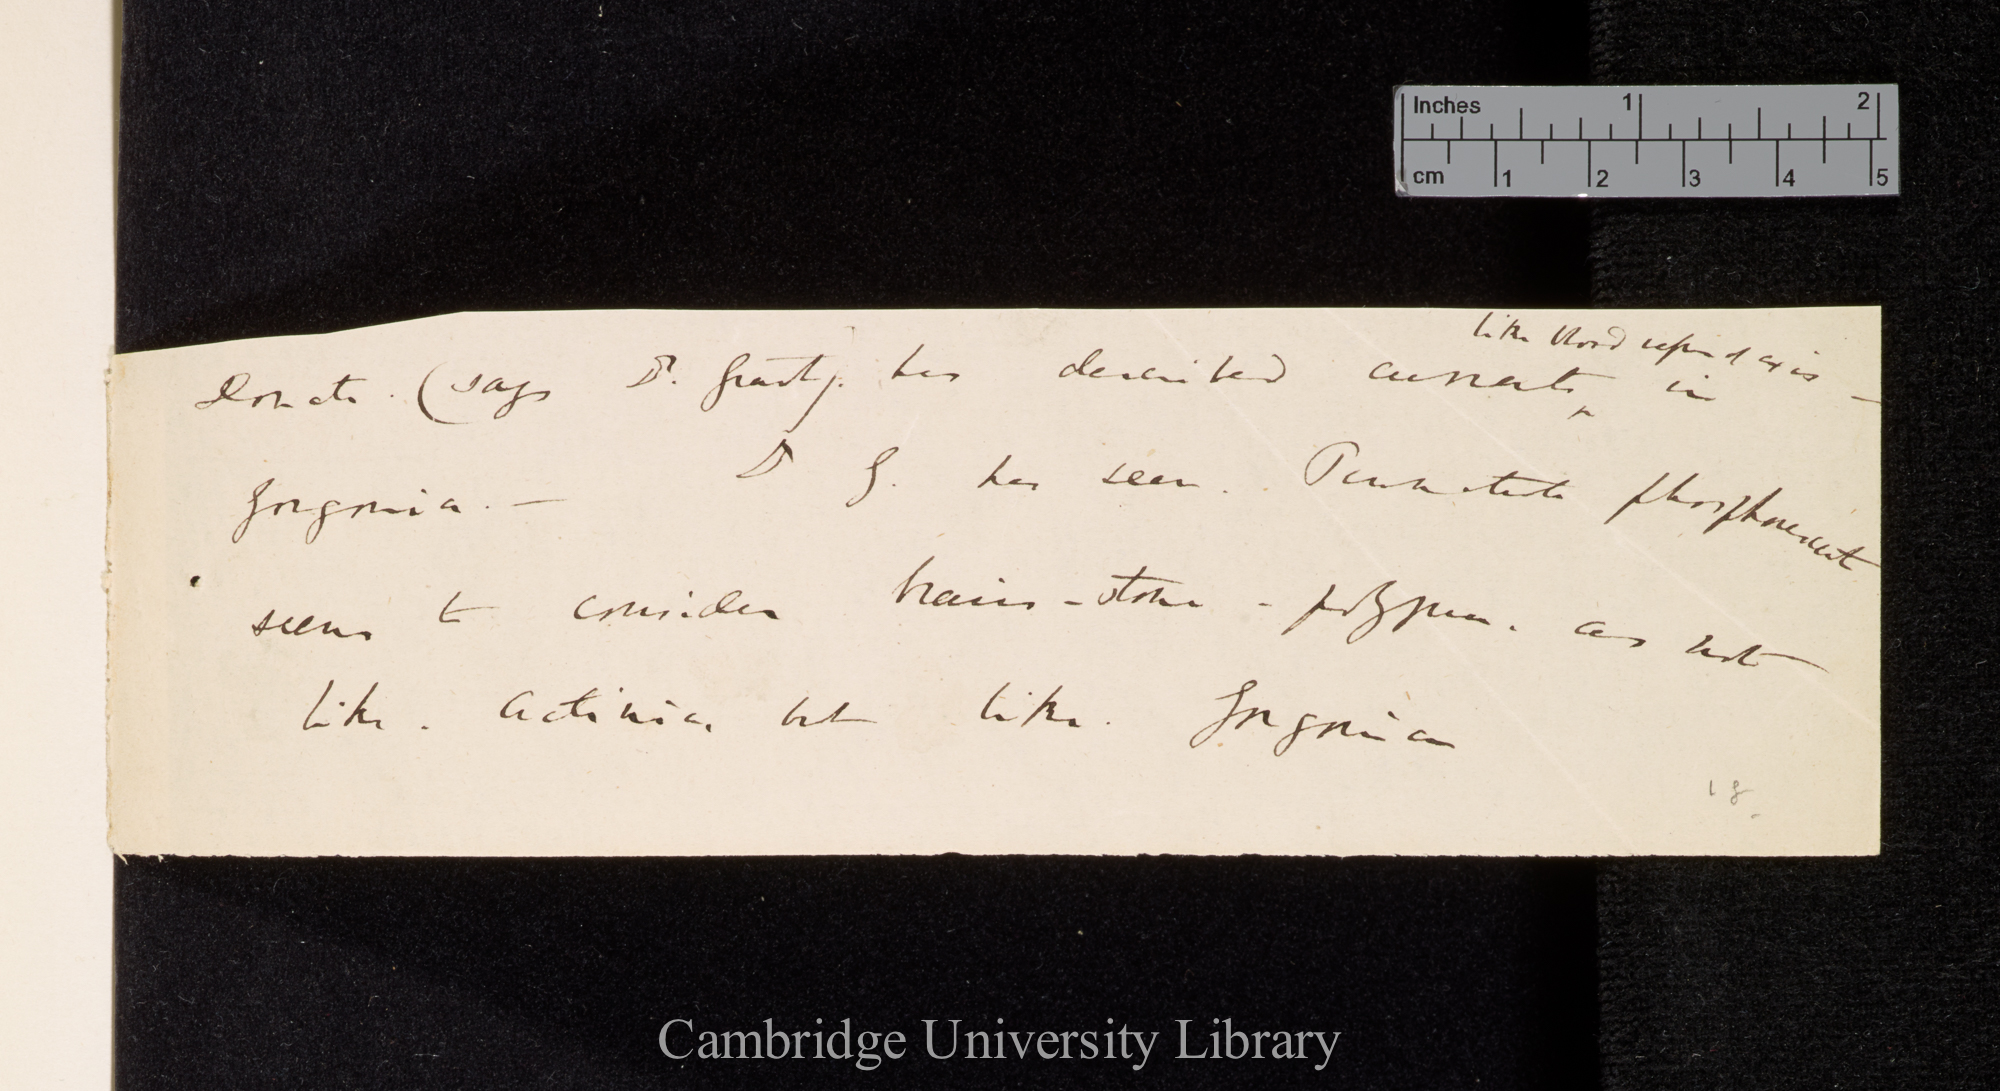 Inches 1 2
cm 1 2 3 4 5
like blood ^ axis —
Donati. (says Dr. Grant). has described currents ^ in
Gorgonia. — D G. has seen. Pennatula phosphorescent
seems to consider brain-stone-polypus. as not
like. Actinia, but like. Gorgonia
18.
Cambridge University Library